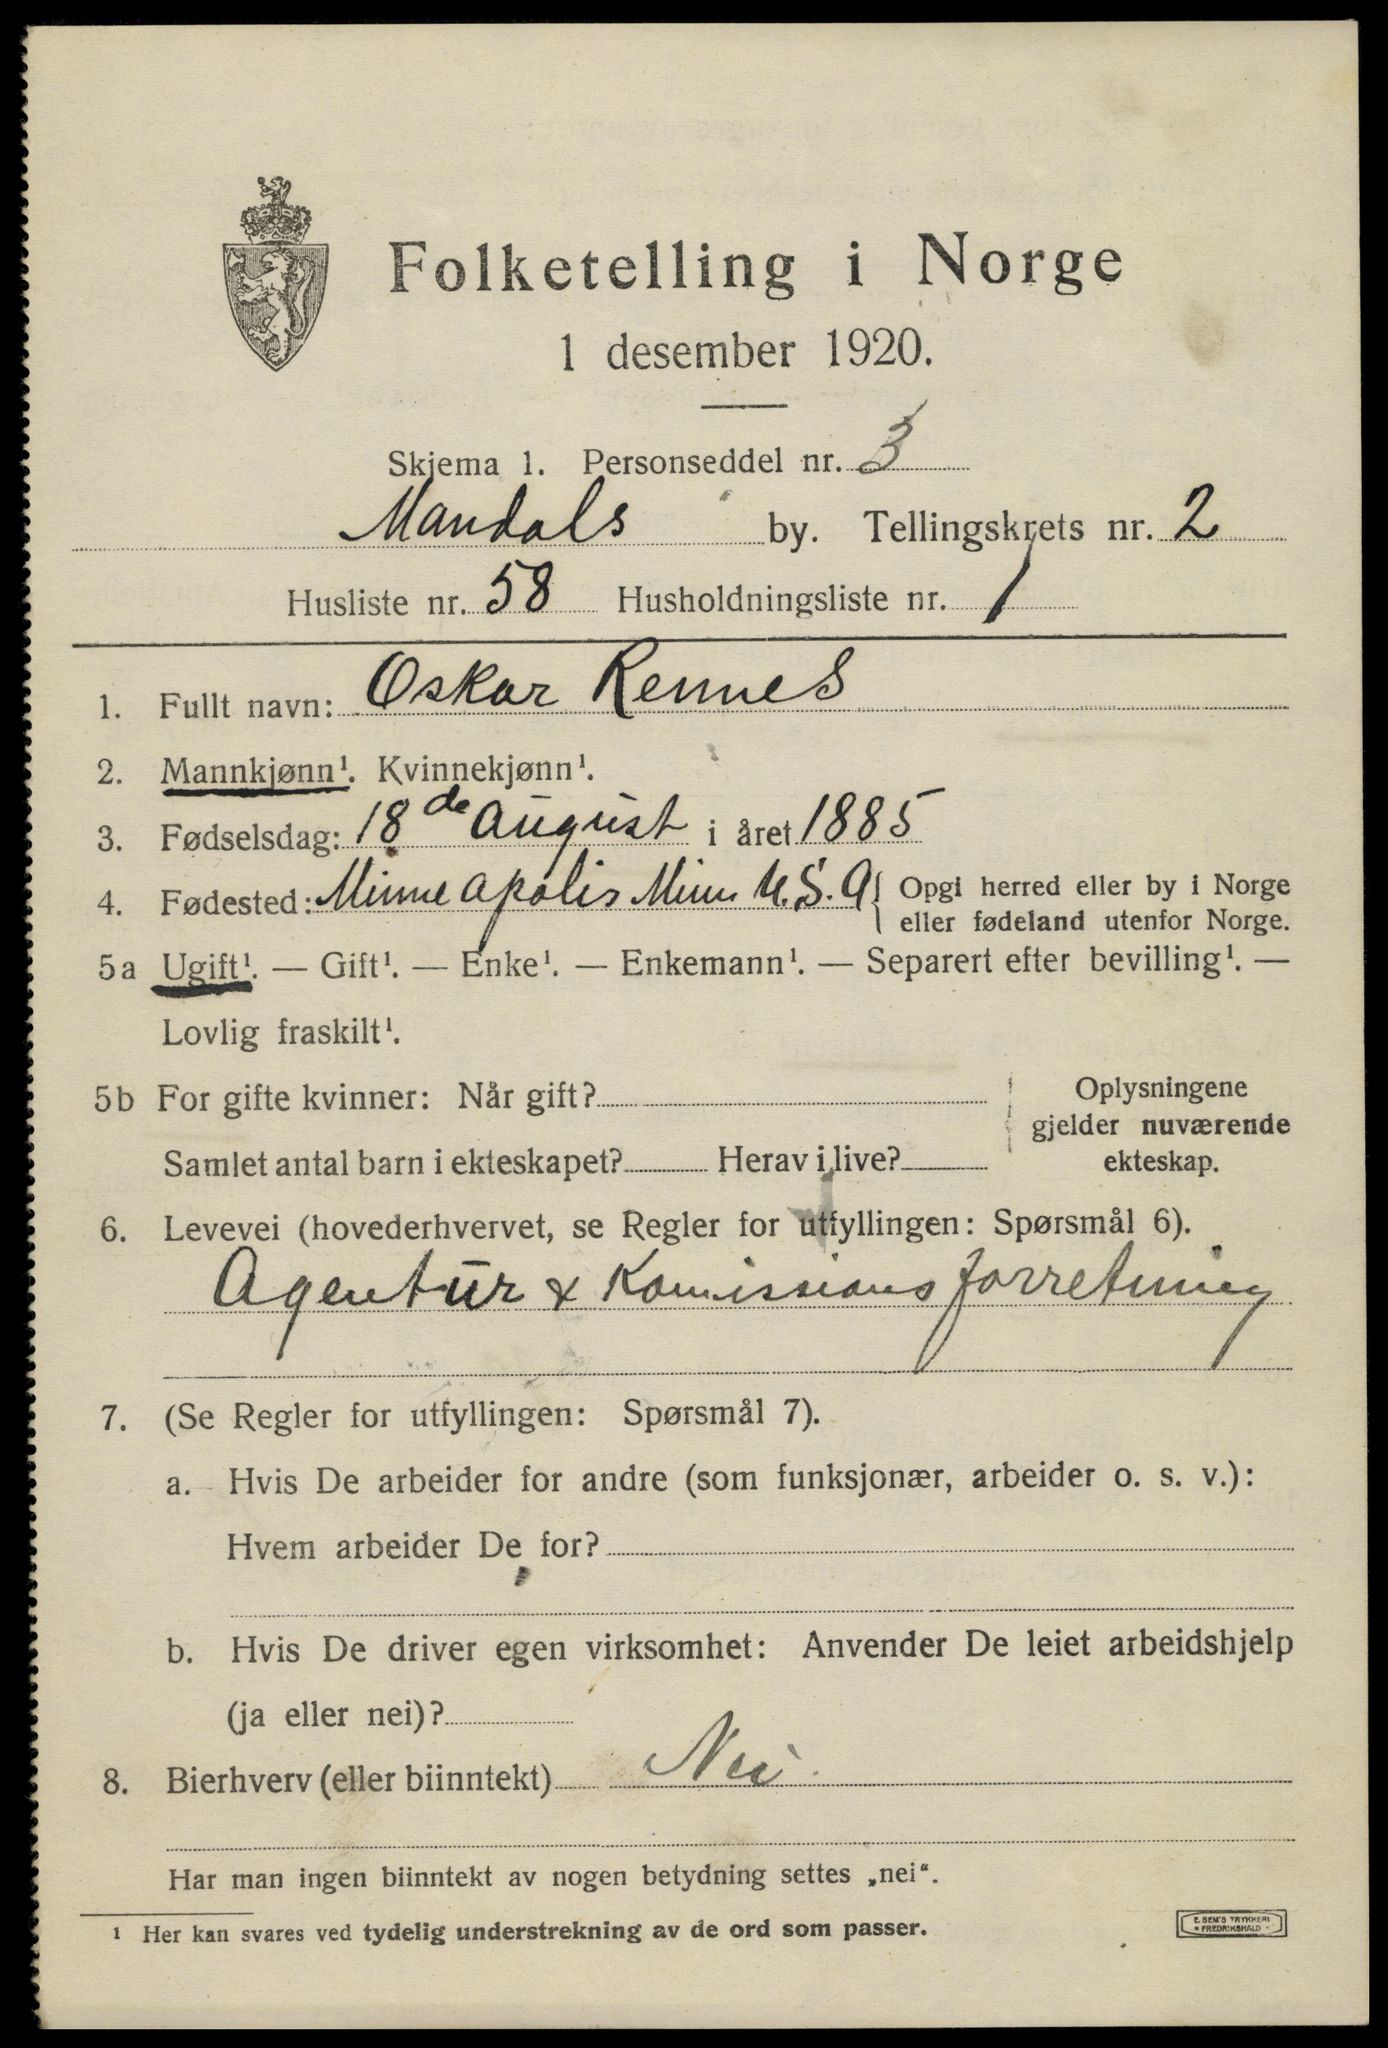 Folketelling i Norge
1 desember 1920.
Skjema 1. Personseddel nr. 3
Mandals by. Tellingskrets nr. 2
Husliste nr. 58 Husholdningsliste nr. 1
1. Fullt navn: Oskar Rennes
2. Mannkjønn¹. Kvinnekjønn¹.
3. Fødselsdag: 18de August i året 1885
4. Fødested: Minneapolis Minn U.S.A { Opgi herred eller by i Norge
eller fødeland utenfor Norge.
5a Ugift¹. — Gift¹. — Enke¹. — Enkemann¹. — Separert efter bevilling¹. —
Lovlig fraskilt¹.
5b For gifte kvinner: Når gift?
Samlet antal barn i ekteskapet? Herav i live?
Oplysningene
gjelder nuværende
ekteskap.
6. Levevei (hovederhvervet, se Regler for utfyllingen: Spørsmål 6).
Agentur & Komissionsforretning
7. (Se Regler for utfyllingen: Spørsmål 7).
a. Hvis De arbeider for andre (som funksjonær, arbeider o. s. v.):
Hvem arbeider De for?
b. Hvis De driver egen virksomhet: Anvender De leiet arbeidshjelp
(ja eller nei)?
8. Bierhverv (eller biinntekt) Nei
Har man ingen biinntekt av nogen betydning settes „nei“.
¹ Her kan svares ved tydelig understrekning av de ord som passer.
E. SEM'S TRYKKERI
FREDRIKSHALD